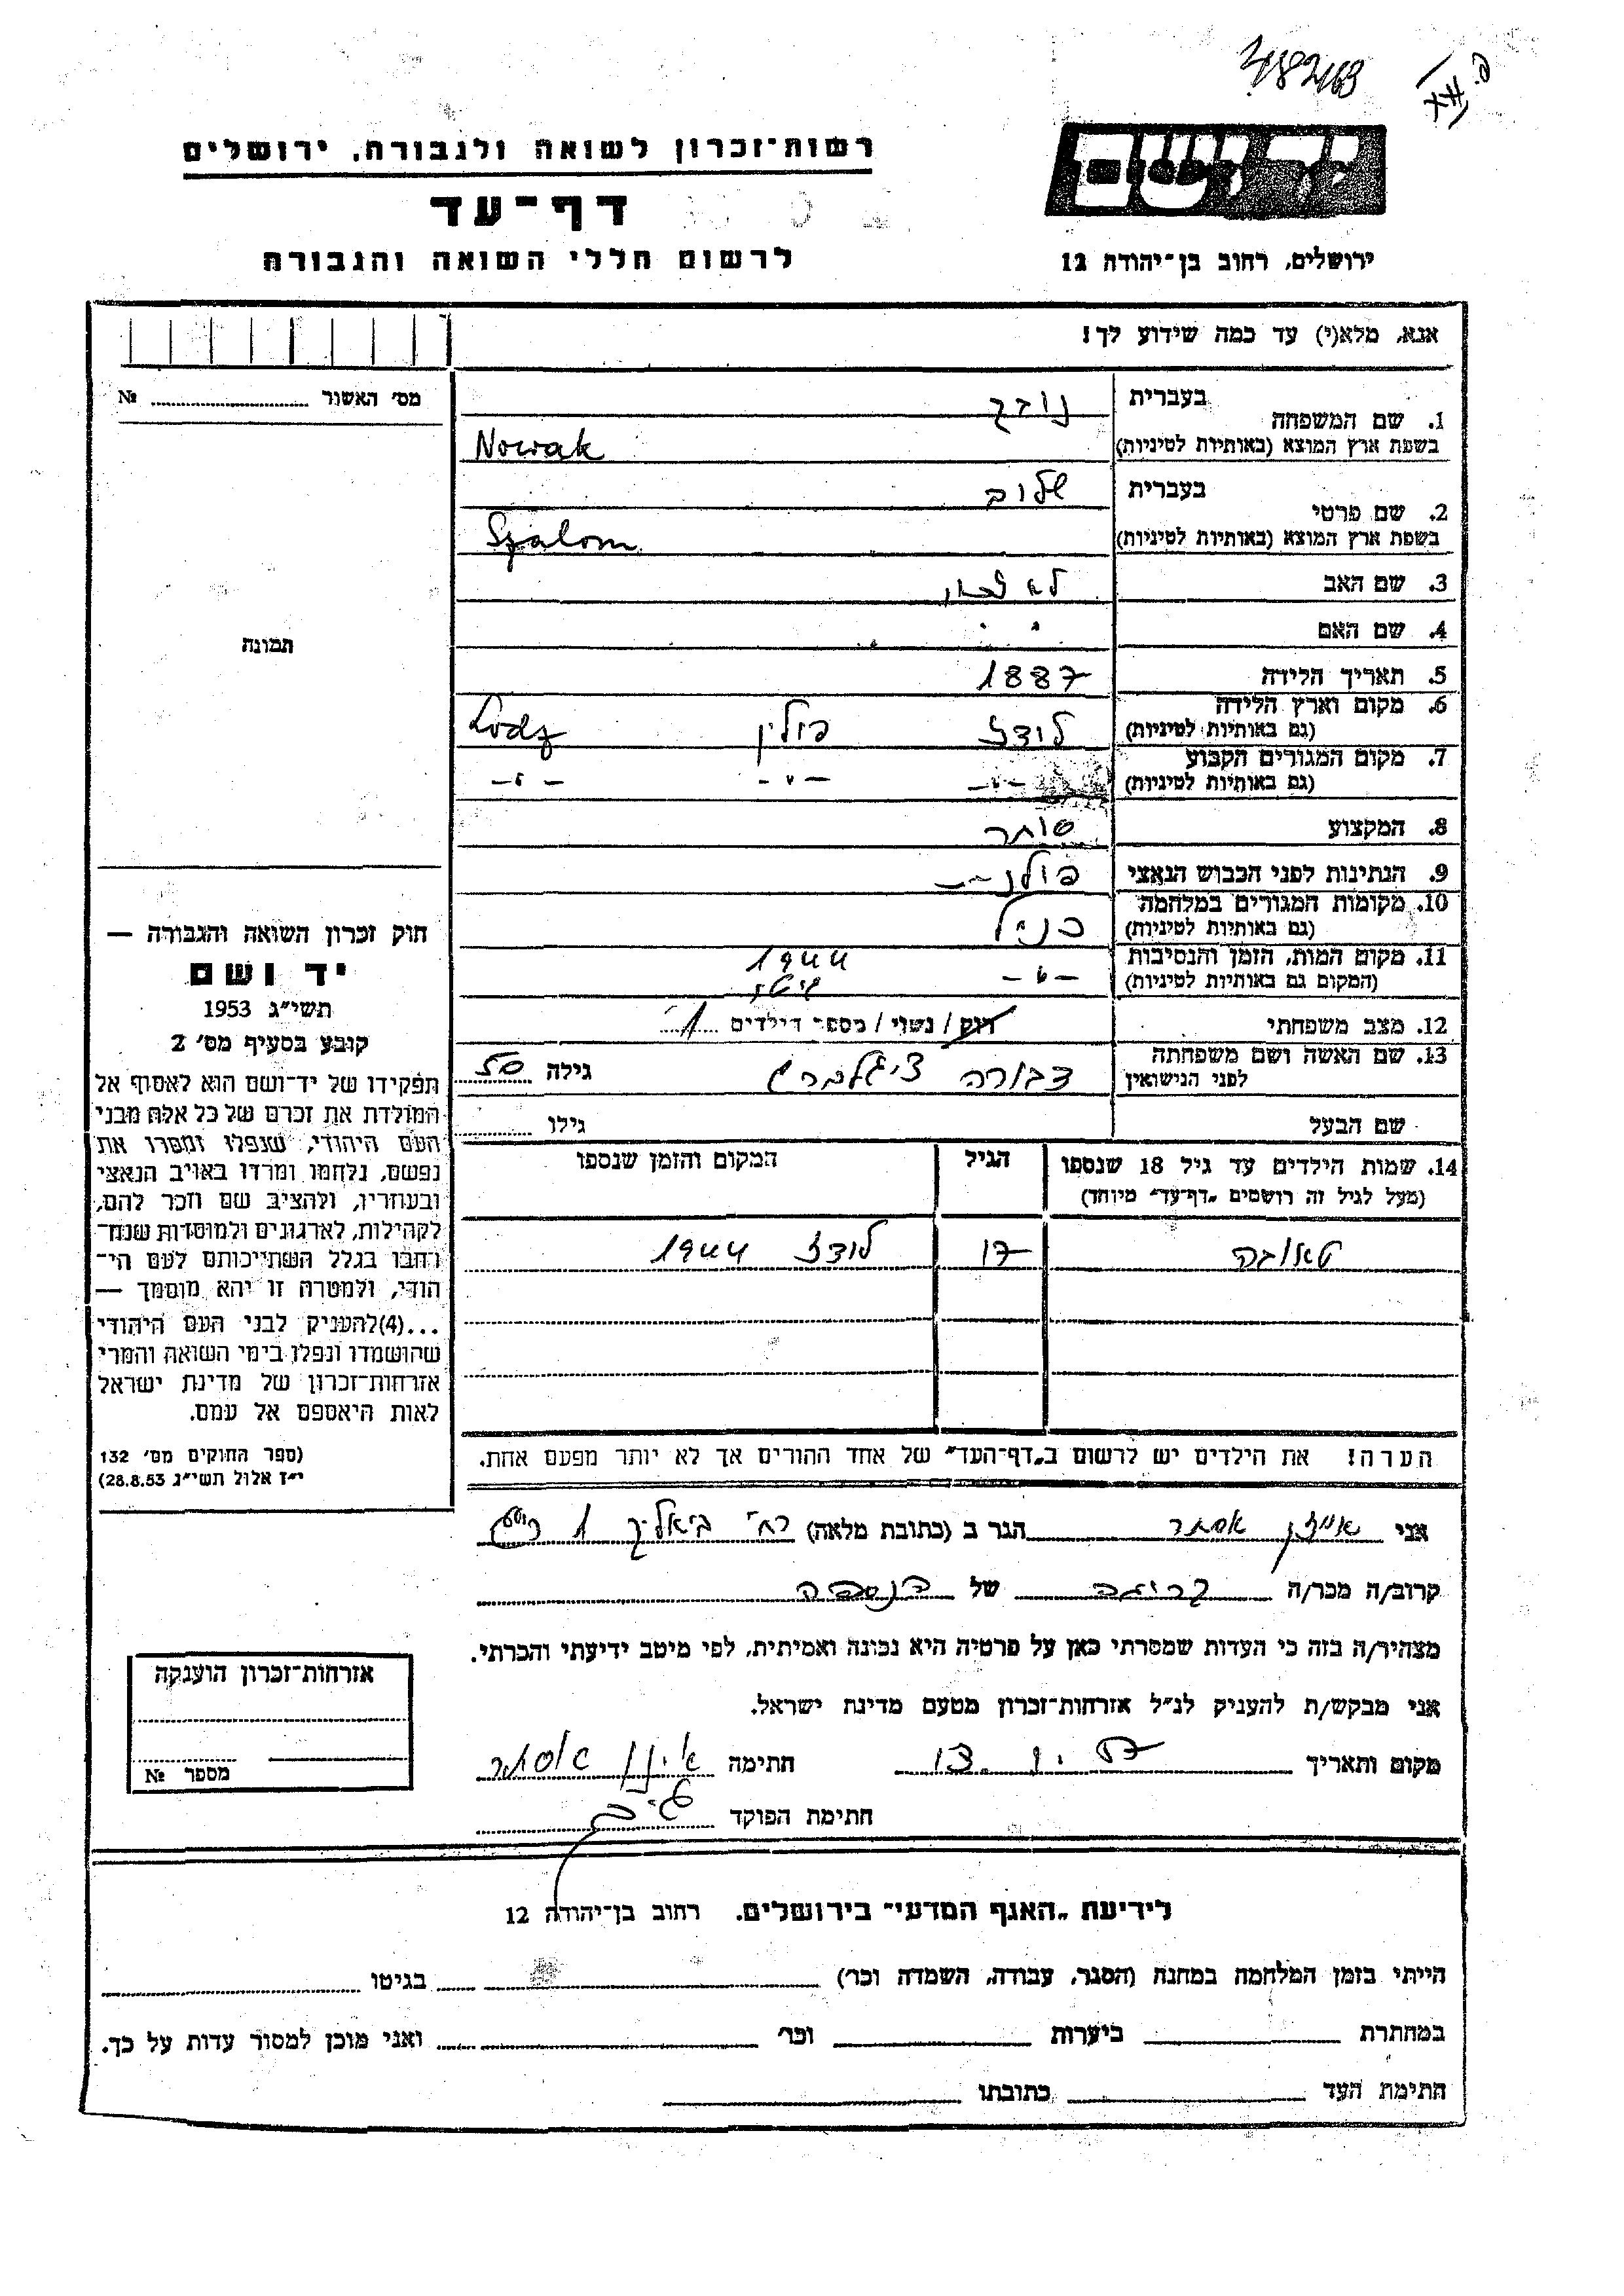 748263
רשות־זכרון לשואה ולגבורה, ירושלים
דף־עד
לרשום חללי השואה והגבורה
יד ושם
ירושלים, רחוב בן־יהודה 12
אנא, מלא(י) עד כמה שידוע לך!
מס׳ האשור № 
1. שם המשפחה
בעברית נובק
בשפת ארץ המוצא (באותיות לטיניות) Nowak
2. שם פרטי
בעברית שלום
בשפת ארץ המוצא (באותיות לטיניות) Szalom
3. שם האב לא
4. שם האם
5. תאריך הלידה 1887
6. מקום וארץ הלידה לודז פולין Lodz
(גם באותיות לטיניות)
7. מקום המגורים הקבוע
(גם באותיות לטיניות)
8. המקצוע סוחר
9. הנתינות לפני הכבוש הנאצי
10. מקומות המגורים במלחמה כנ"ל
(גם באותיות לטיניות)
11. מקום המות, הזמן והנסיבות 1944
(המקום גם באותיות לטיניות) גיטו
12. מצב משפחתי רווק / נשוי / מספר הילדים 1
13. שם האשה ושם משפחתה
לפני הנישואין דבורה ציגלברג גילה 50
שם הבעל גילו
14. שמות הילדים עד גיל 18 שנספו הגיל המקום והזמן שנספו
(מעל לגיל זה רושמים „דף־עד" מיוחד)
17 לודז 1944
הערה! את הילדים יש לרשום ב„דף־העד" של אחד ההורים אך לא יותר מפעם אחת.
אני אייזן אסתר הגר ב (כתובת מלאה) רח' ביאליק 1
קרוב/ה מכר/ה קרובה של הנספה
מצהיר/ה בזה כי העדות שמסרתי כאן על פרטיה היא נכונה ואמיתית, לפי מיטב ידיעתי והכרתי.
אני מבקש/ת להעניק לנ״ל אזרחות־זכרון מטעם מדינת ישראל.
מקום ותאריך חתימה אייזן אסתר
חתימת הפוקד
תמונה
חוק זכרון השואה והגבורה —
יד ושם
תשי״ג 1953
קובע בסעיף מס׳ 2
תפקידו של יד־ושם הוא לאסוף אל
המולדת את זכרם של כל אלה מבני
העם היהודי, שנפלו ומסרו את
נפשם, נלחמו ומרדו באויב הנאצי
ובעוזריו, ולהציב שם וזכר להם,
לקהילות, לארגונים ולמוסדות שנח־
רחבו בגלל השתייכותם לעם הי־
הודי, ולמטרה זו יהא מוסמך —
...(4)להעניק לבני העם היהודי
שהושמדו ונפלו בימי השואה והמרי
אזרחות־זכרון של מדינת ישראל
לאות היאספם אל עמם.
(ספר החוקים מס׳ 132
י״ז אלול תשי״ג 28.8.53)
אזרחות־זכרון הוענקה
מספר №
לידיעת „האגף המדעי" בירושלים, רחוב בן־יהודה 12
הייתי בזמן המלחמה במחנה (הסגר, עבודה, השמדה וכר׳) בגיטו
במחתרת ביערות וכר׳ ואני מוכן למסור עדות על כך.
חתימת העד כתובתו